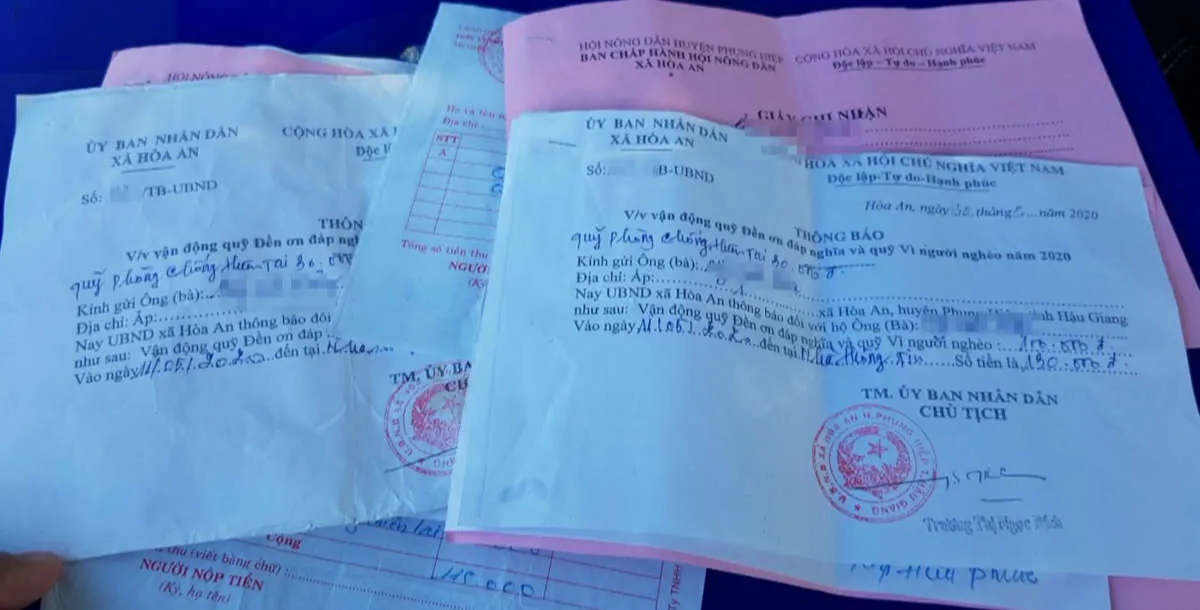 HỘI NÔNG
ỦY BAN NHÂN DÂN
XÃ HÒA AN
CỘNG HÒA XÃ
Độc lậ
Số: /TB-UBND
THÔN
V/v vận động quỹ Đền ơn đáp ngh
quỹ phòng chống thiên Tai 30.000
Kính gửi Ông (bà):
Địa chỉ: Ấp:
Nay UBND xã Hòa An thông báo đối
như sau: Vận động quỹ Đền ơn đáp
Vào ngày 11.05.2020 đến tại
TM. ỦY BA
CH
Họ và tên
Địa chỉ
STT
A
Tổng số tiền thu
NGƯỜI
(Ký
HỘI NÔNG DÂN HUYỆN PHỤNG HIỆP
BAN CHẤP HÀNH HỘI NÔNG DÂN
XÃ HÒA AN
CỘNG HÒA XÃ HỘI CHỦ NGHĨA VIỆT NAM
Độc lập - Tự do - Hạnh phúc
GIẤY GHI NHẬN
ỦY BAN NHÂN DÂN
XÃ HÒA AN
HÒA XÃ HỘI CHỦ NGHĨA VIỆT NAM
Độc lập-Tự do-Hạnh phúc
Số: B-UBND
Hòa An, ngày tháng năm 2020
THÔNG BÁO
V/v vận động quỹ Đền ơn đáp nghĩa và quỹ Vì người nghèo năm 2020
quỹ phòng chống thiên Tai 30.000đ
Kính gửi Ông (bà):
Địa chỉ: Ấp: xã Hòa An, huyện Phụng tỉnh Hậu Giang
Nay UBND xã Hòa An thông báo đối với hộ Ông (Bà):
như sau: Vận động quỹ Đền ơn đáp nghĩa và quỹ Vì người nghèo: 100.000đ
Vào ngày 11.05.2020 đến tại Nhà thông tin Số tiền là 130.000đ
TM. ỦY BAN NHÂN DÂN
CHỦ TỊCH
U.B.N.D XÃ HÒA AN H.PHỤNG HIỆP T.HẬU GIANG
Trương Thị Ngọc
Cộng
115.000
thu (viết bằng chữ):
NGƯỜI NỘP TIỀN
(Ký, họ tên)
Huy Phúc
ty TNHH